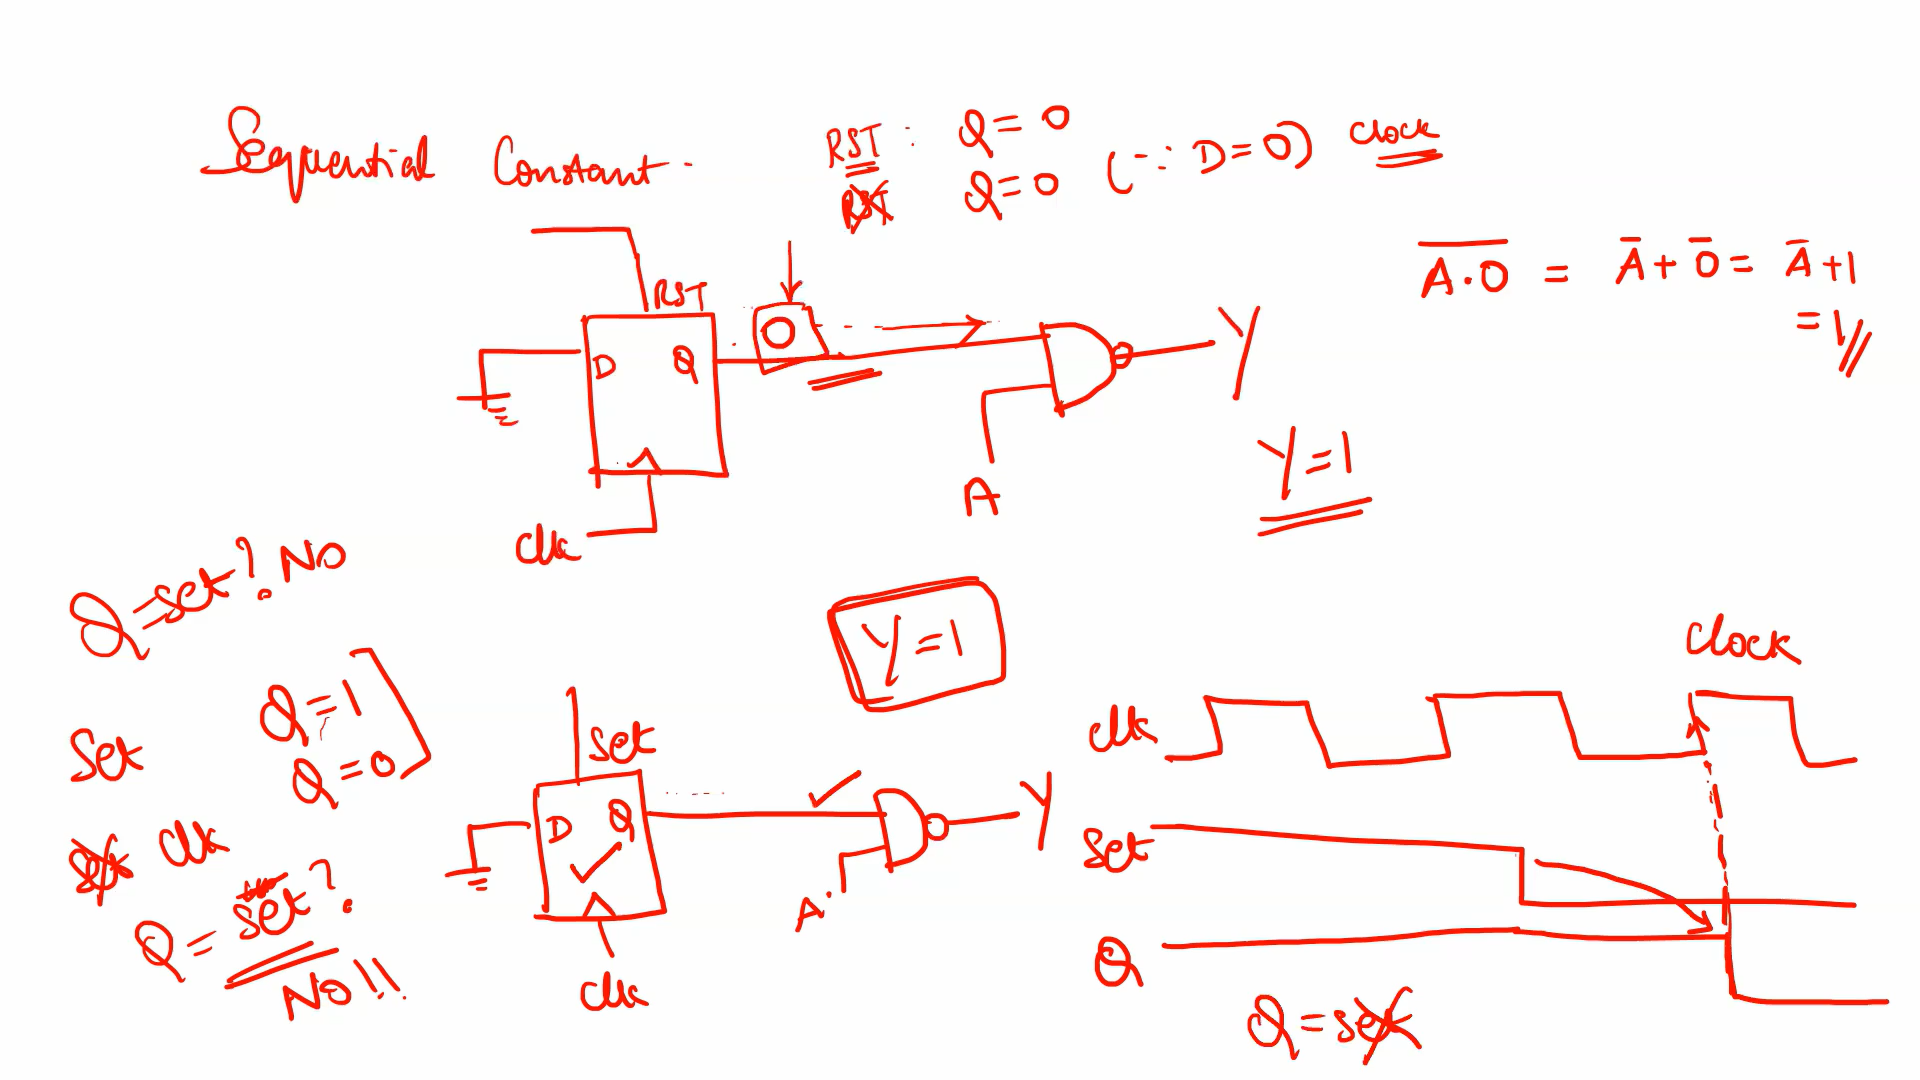 Sequential Constant
RST : Q = 0
RST Q = 0 (∵ D = 0) clock
A·0̅ = A̅ + 0̅ = A̅ + 1
= 1
RST
D Q
0
Y
A
clk
Y = 1
Q = set? NO
Y = 1
Clock
Q = 1
Set
Q = 0
set
D Q
Y
A
clk
set clk
Q = set?
NO!!
clk
set
Q
Q = set